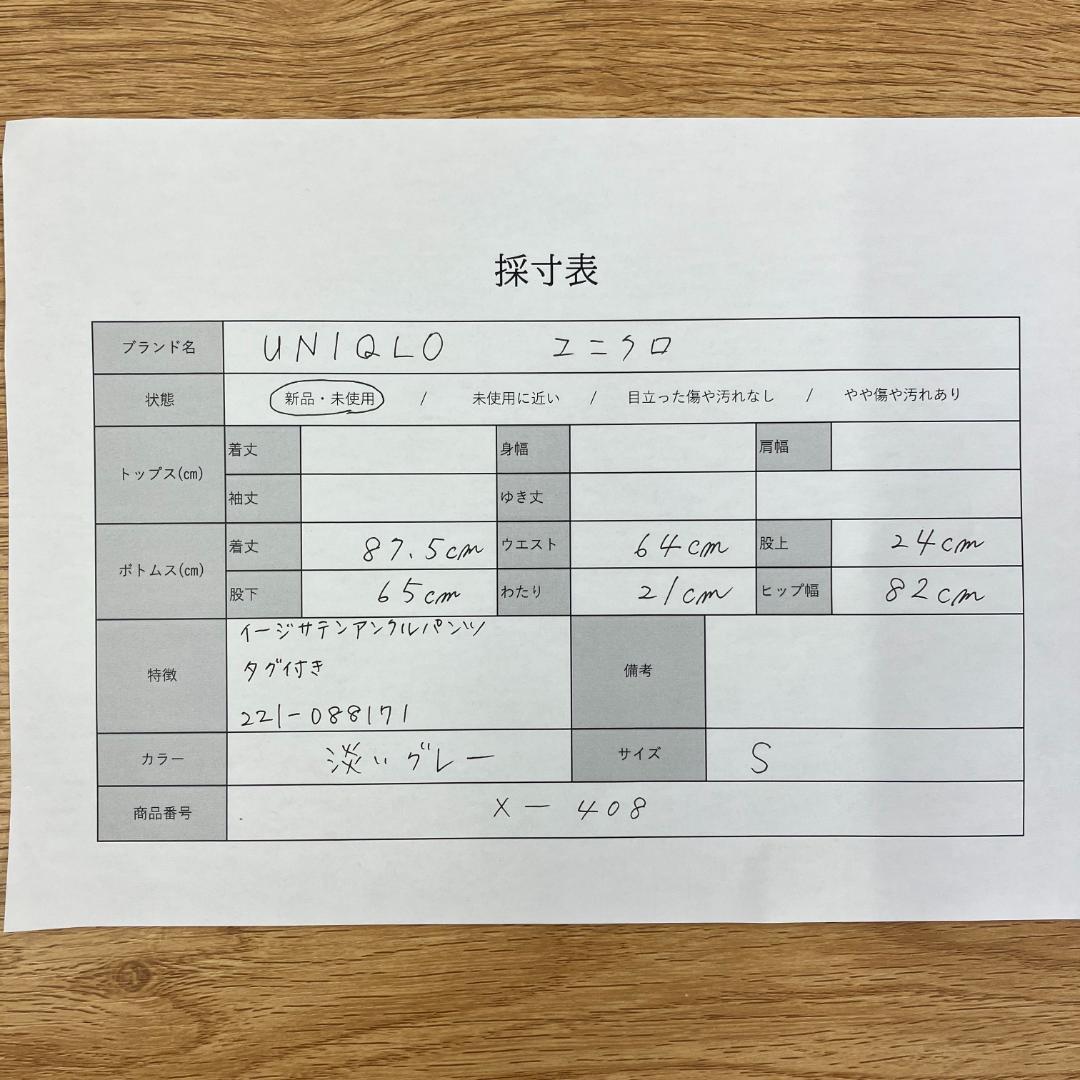 採寸表
ブランド名 UNIQLO ユニクロ
状態 新品・未使用 / 未使用に近い / 目立った傷や汚れなし / やや傷や汚れあり
トップス(cm) 着丈 身幅 肩幅
袖丈 ゆき丈
ボトムス(cm) 着丈 87.5cm ウエスト 64cm 股上 24cm
股下 65cm わたり 21cm ヒップ幅 82cm
特徴 イージサテンアンクルパンツ 備考
タグ付き
221-088171
カラー 淡いグレー サイズ S
商品番号 X-408